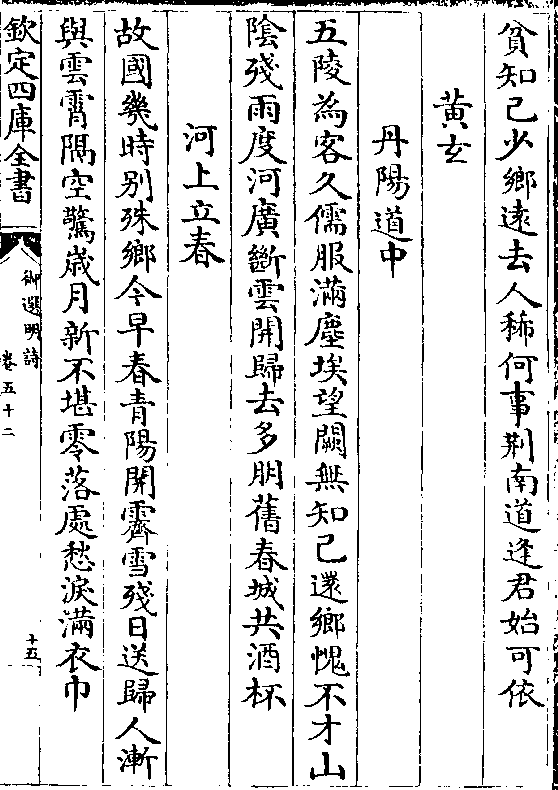 貧知己少鄉遠去人稀何事荆南道逢君始可依
黄玄
丹陽道中
五陵為客久儒服滿塵埃望闕無知己還鄉愧不才山
陰殘雨度河廣斷雲開歸去多朋舊春城共酒杯
河上立春
故國幾時别殊鄉今早春青陽開霽雪殘日送歸人漸
與雲霄隔空驚歲月新不堪零落處愁淚滿衣巾
欽定四庫全書
御選明詩
卷五十二
十五